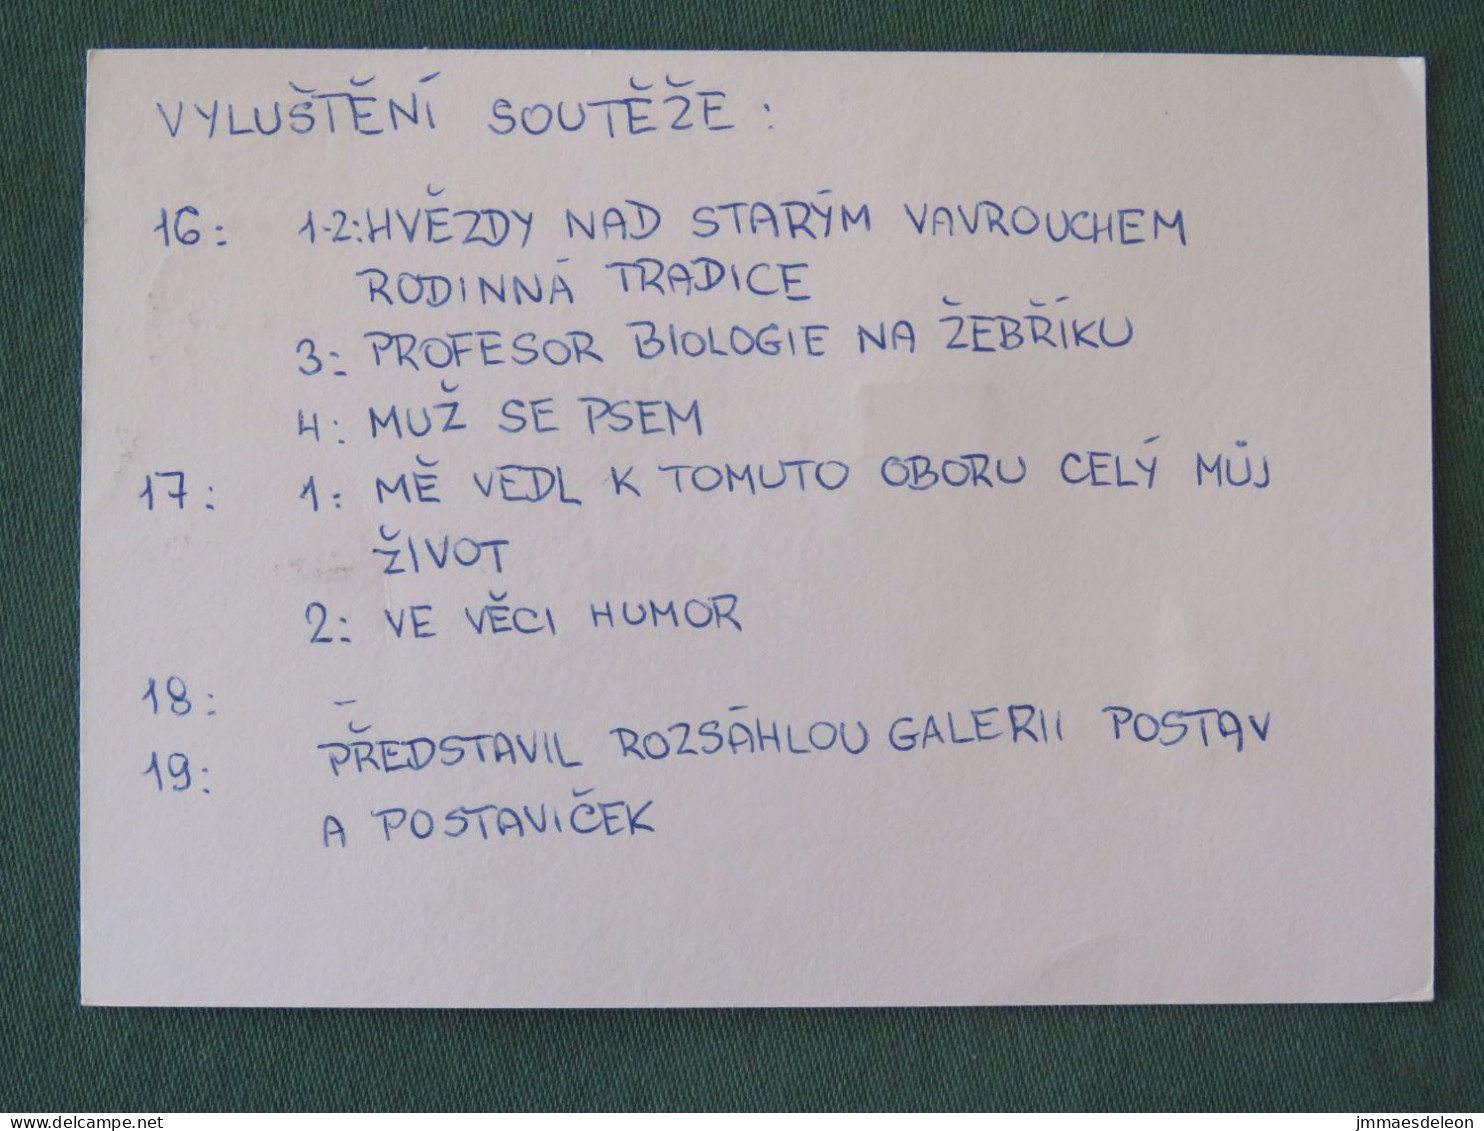 VYLUŠTĚNÍ SOUTĚŽE :
16: 1-2: HVĚZDY NAD STARÝM VAVROUCHEM
RODINNÁ TRADICE
3: PROFESOR BIOLOGIE NA ŽEBŘÍKU
4: MUŽ SE PSEM
17: 1: MĚ VEDL K TOMUTO OBORU CELÝ MŮJ
ŽIVOT
2: VE VĚCI HUMOR
18: –
19: PŘEDSTAVIL ROZSÁHLOU GALERII POSTAV
A POSTAVIČEK
delcampe.net
jmmaesdeleon